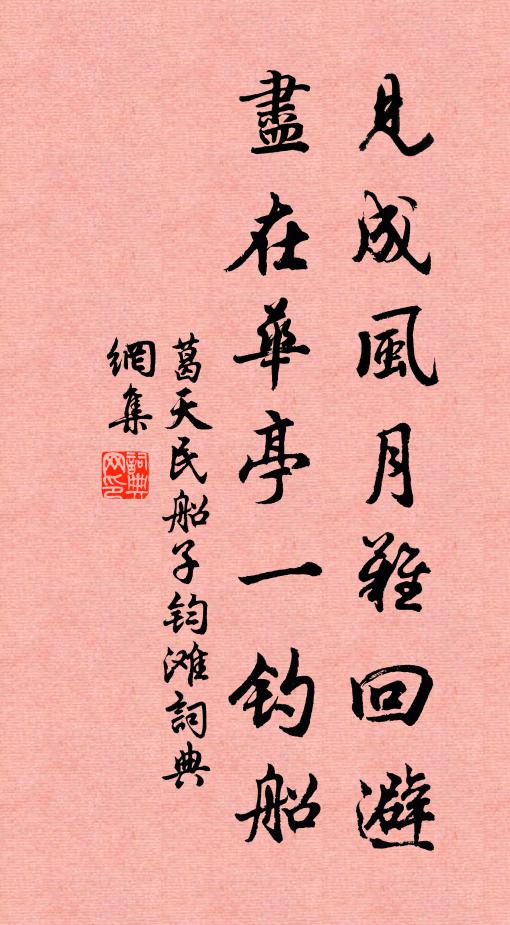 見成風月難回避
盡在華亭一钓船
葛天民船子钓滩詞典
網集
詞典网印